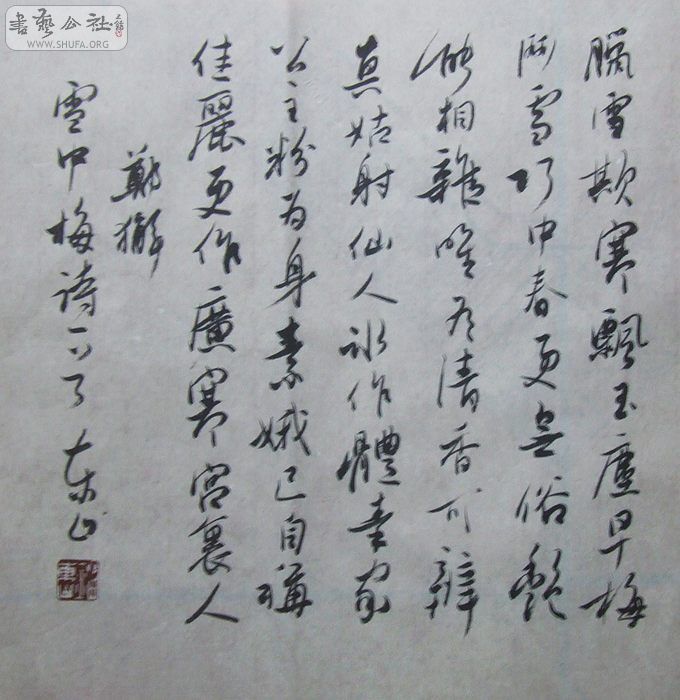 書藝公社
WWW.SHUFA.ORG
臘雪欺寒飄玉塵早梅
鬥雪巧中春更無俗艷
能相雜唯有清香可辨
真姑射仙人冰作體秦家
公主粉为身素娥已自稱
佳麗更作廣寒宫裏人
鄭獬
雪中梅詩一首 東山